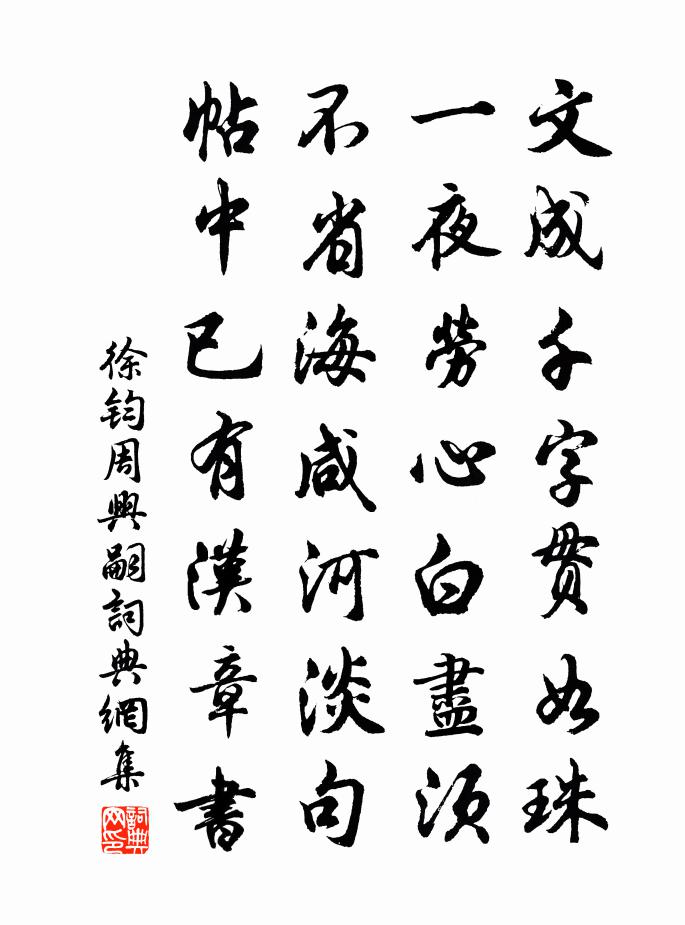 文成千字貫如珠
一夜勞心白盡須
不省海咸河淡句
帖中已有漢章書
徐鈞周興嗣詞典網集
詞典网印